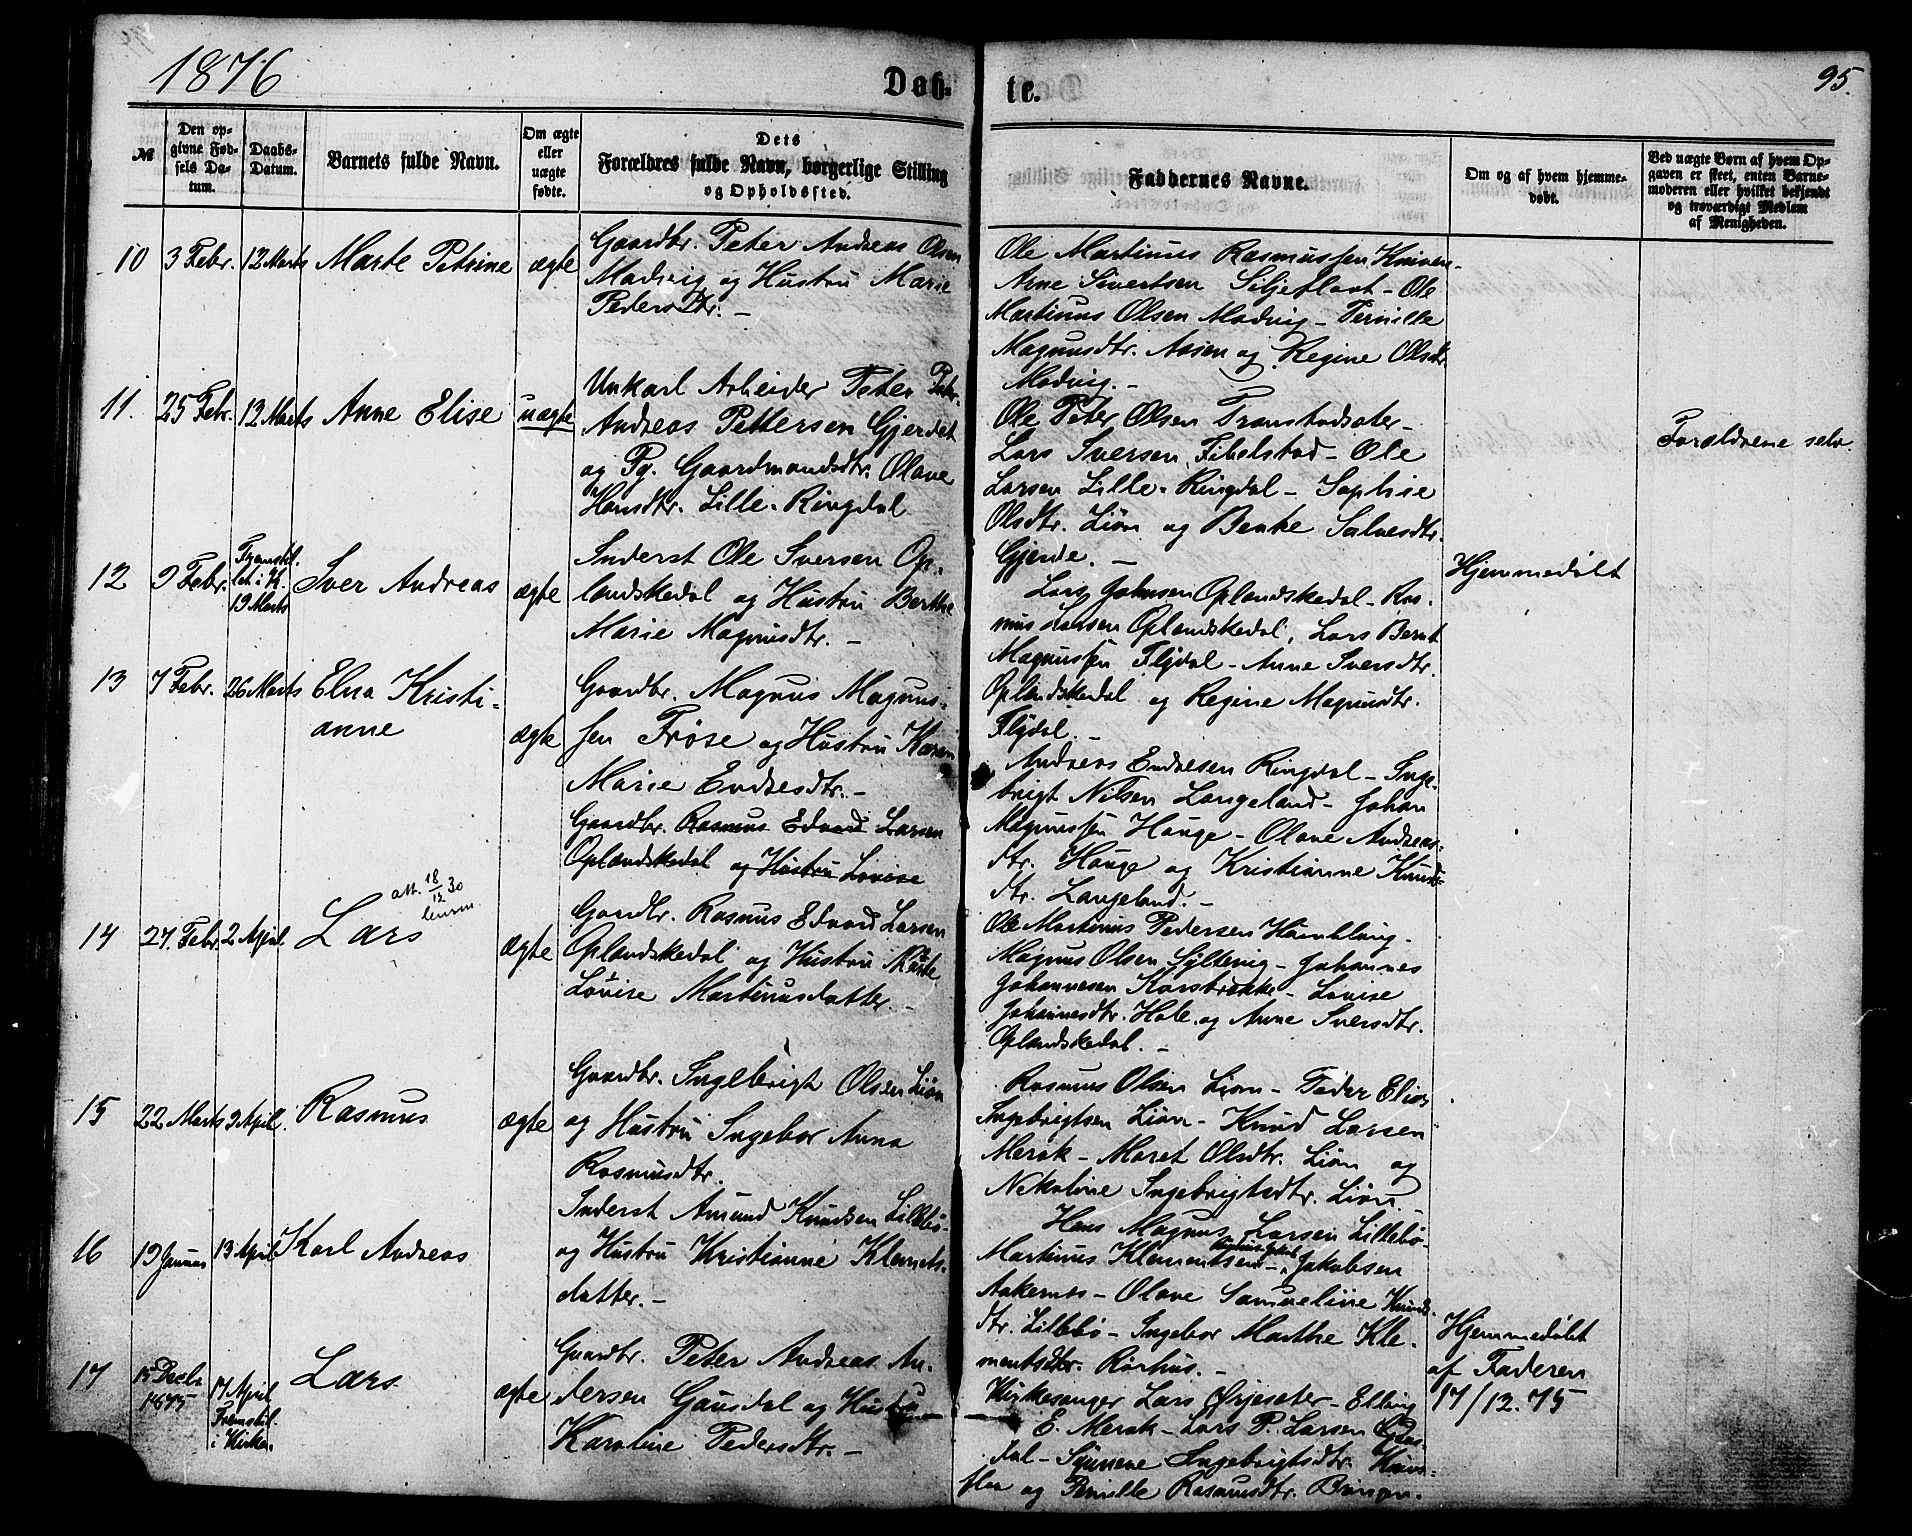 1876
Døb-
te.
95.
№
Den op-
givne Fød-
sels Da-
tum.
Daabs-
Datum.
Barnets fulde Navn.
Om ægte
eller
uægte
fødte.
Dets
Forældres fulde Navn, borgerlige Stilling
og Opholdssted.
Faddernes Navne.
Om og af hvem hjemme-
døbt.
Ved uægte Børn af hvem Op-
gaven er skeet, enten Barne-
moderen eller hvilket bekjendt
og troværdigt Medlem
af Menigheden.
10 3 Febr. 12 Marts Marte Petrine ægte
Gaardbr. Peter Andreas Olsen
Madvig og Hustru Marie
Peders Dtr. -
Ole Martinus Rasmussen Kniven-
Arne Sivertsen Siljeflaat - Ole
Martinus Olsen Madvig - Pernille
Magnusdtr. Aasen og Regine Olsdtr.
Madvig. -
11. 25 Febr. 12 Marts Anne Elise uægte
Unkarl Arbeider Peter
Andreas Pettersen Gjerdet
og Pg. Gaardmandsdtr. Olave
Hansdtr. Lille-Ringdal
Ole Peter Olsen Transtadsæter-
Lars Iversen Fibelstad - Ole
Larsen Lille-Ringdal - Sophie
Olsdtr. Liøn og Benke Salvesdtr.
Gjerde. -
Forældrene selv.
12 9 Febr. Fremstil-
let i K.
19 Marts
Iver Andreas ægte
Inderst Ole Iversen Op-
landskedal og Hustru Berthe
Marie Magnusdtr. -
Lars Johnsen Oplandskedal - Ras-
mus Larsen Oplandskedal, Lars Bernt
Magnussen Flydal - Anne Iversdtr.
Oplandskedal og Regine Magnusdtr.
Flydal. -
Hjemmedøbt
13 7 Febr. 26 Marts Elna Kristi-
anne
ægte
Gaardbr. Magnus Magnus-
sen Frøse og Hustru Karen
Marie Endresdtr. -
Andreas Endresen Ringdal - Inge-
brigt Nilsen Langeland - Johan
Magnussen Hauge - Olave Andreas-
dtr. Hauge og Kristianne Knuds-
dtr. Langeland. -
Gaardbr. Rasmus Edvard Larsen
Oplandskedal og Hustru Lovise
14 27. Febr. 2 April. Lars
att. 18/12 30
ægte
Gaardbr. Rasmus Edvard Larsen
Oplandskedal og Hustru Marte
Lovise Martinusdatter. -
Ole Martinus Pedersen
Magnus Olsen Syltevig - Johannes
Johannesen Korsbrække - Lovise
Johannesdtr. Hole og Anne Iversdtr.
Oplandskedal. -
15 22 Marts 9 April. Rasmus ægte
Gaardbr. Ingebrigt Olsen Liøn
og Hustru Ingebor Anna
Rasmusdtr.
Rasmus Olsen Liøn - Peder Elias
Ingebrigtsen Liøn - Knud Larsen
Merok - Maret Olsdtr. Liøn og
Nekoline Ingebrigtsdtr. Liøn. -
16 19 Januar 13 April Karl Andreas
Inderst Amund Knudsen Lillebø
og Hustru Kristianne Klemets-
datter. -
Hans Magnus Larsen Lillebø-
Martinus Klementsen - Jakobsen
Aakernes - Olave Samueline Knuds-
dtr. Lillebø - Ingebor Marthe Kle-
mentsdtr. Rørhus. -
17 15 Decbr
1875
17 April
Fremstil.
i Kirken
Lars ægte
Gaardbr. Peter Andreas An-
dersen Gausdal og Hustru
Karoline Pedersdtr. -
Kirkesanger Lars Ørjeseter - Elling
E. Merok - Lars P. Larsen Gaus-
dal - Synneve Ingebrigtsdtr. Knivs-
flaa og Pernille Rasmusdtr. Bringen.
Hjemmedøbt
af Faderen
17/12.75